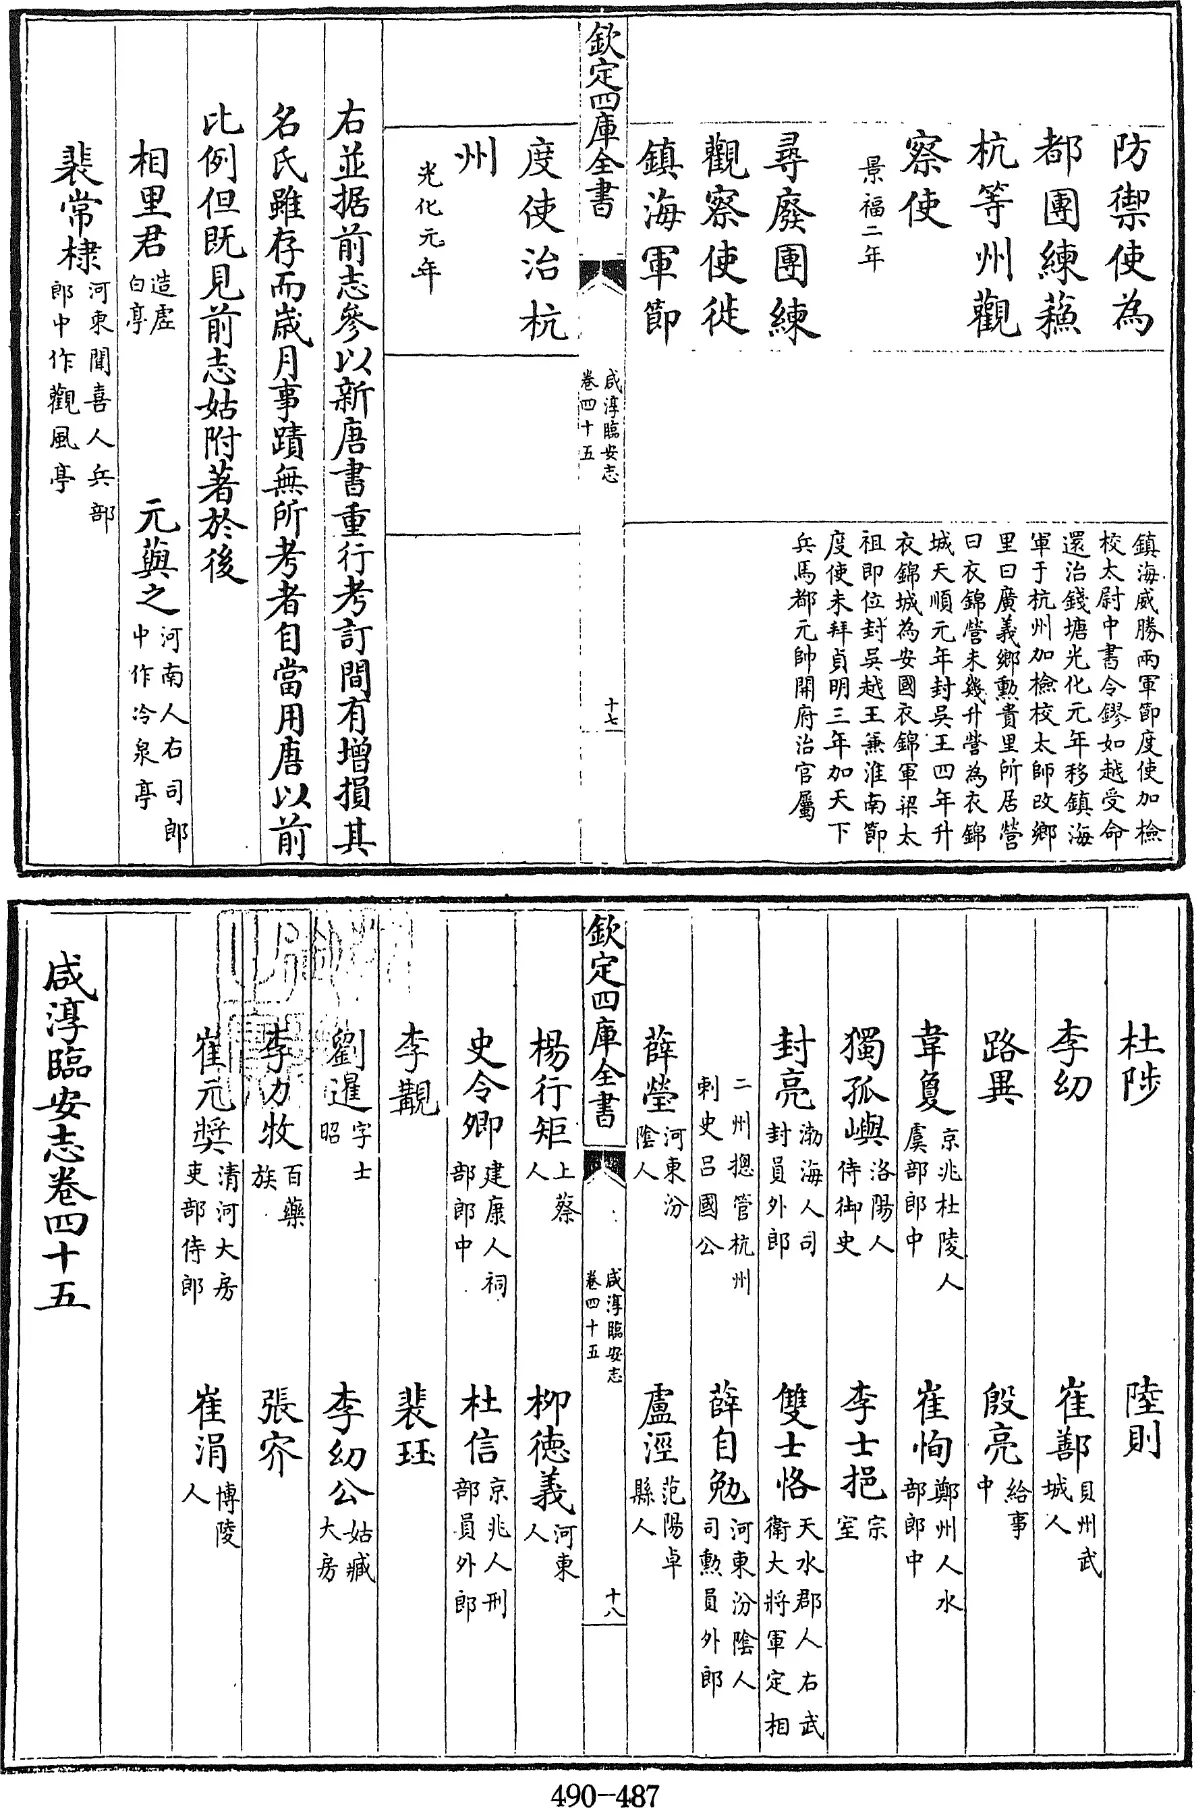 防禦使為
都團練蘓
杭等州觀
察使
景福二年
尋廢團練
觀察使徙
鎮海軍節
鎮海威勝兩軍節度使加檢
校太尉中書令鏐如越受命
還治錢塘光化元年移鎮海
軍于杭州加檢校太師改鄉
里曰廣義鄉勳貴里所居營
曰衣錦營未幾升營為衣錦
城天順元年封吴王四年升
衣錦城為安國衣錦軍梁太
祖即位封吴越王兼淮南節
度使未拜貞明三年加天下
兵馬都元帥開府治官屬
欽定四庫全書
咸淳臨安志
卷四十五
十七
度使治杭
州
光化元年
右並据前志參以新唐書重行考訂間有增損其
名氏雖存而歳月事蹟無所考者自當用唐以前
比例但既見前志姑附著於後
相里君 造虚白亭 元藇之 河南人右司郎中作冷泉亭
裴常棣 河東聞喜人兵部郎中作觀風亭
杜陟 陸則
李幼 崔鄯 貝州武城人
路異 殷亮 給事中
韋夐 京兆杜陵人虞部郎中 崔恂 鄭州人水部郎中
獨孤嶼 洛陽人侍御史 李士挹 宗室
封亮 渤海人司封員外郎 雙士恪 天水郡人右武衛大將軍定相
二州摠管杭州刺史吕國公 薛自勉 河東汾隂人司勲員外郎
薛瑩 河東汾隂人 盧涇 范陽卓縣人
欽定四庫全書
咸淳臨安志
卷四十五
十八
楊行矩 上蔡人 柳徳義 河東人
史令卿 建康人祠部郎中 杜信 京兆人刑部員外郎
李覯 裴珏
劉暹 字士昭 李幼公 姑臧大房
李力牧 百藥族 張𠕋
崔元奬 清河大房吏部侍郎 崔涓 博陵人
咸淳臨安志卷四十五
490-487